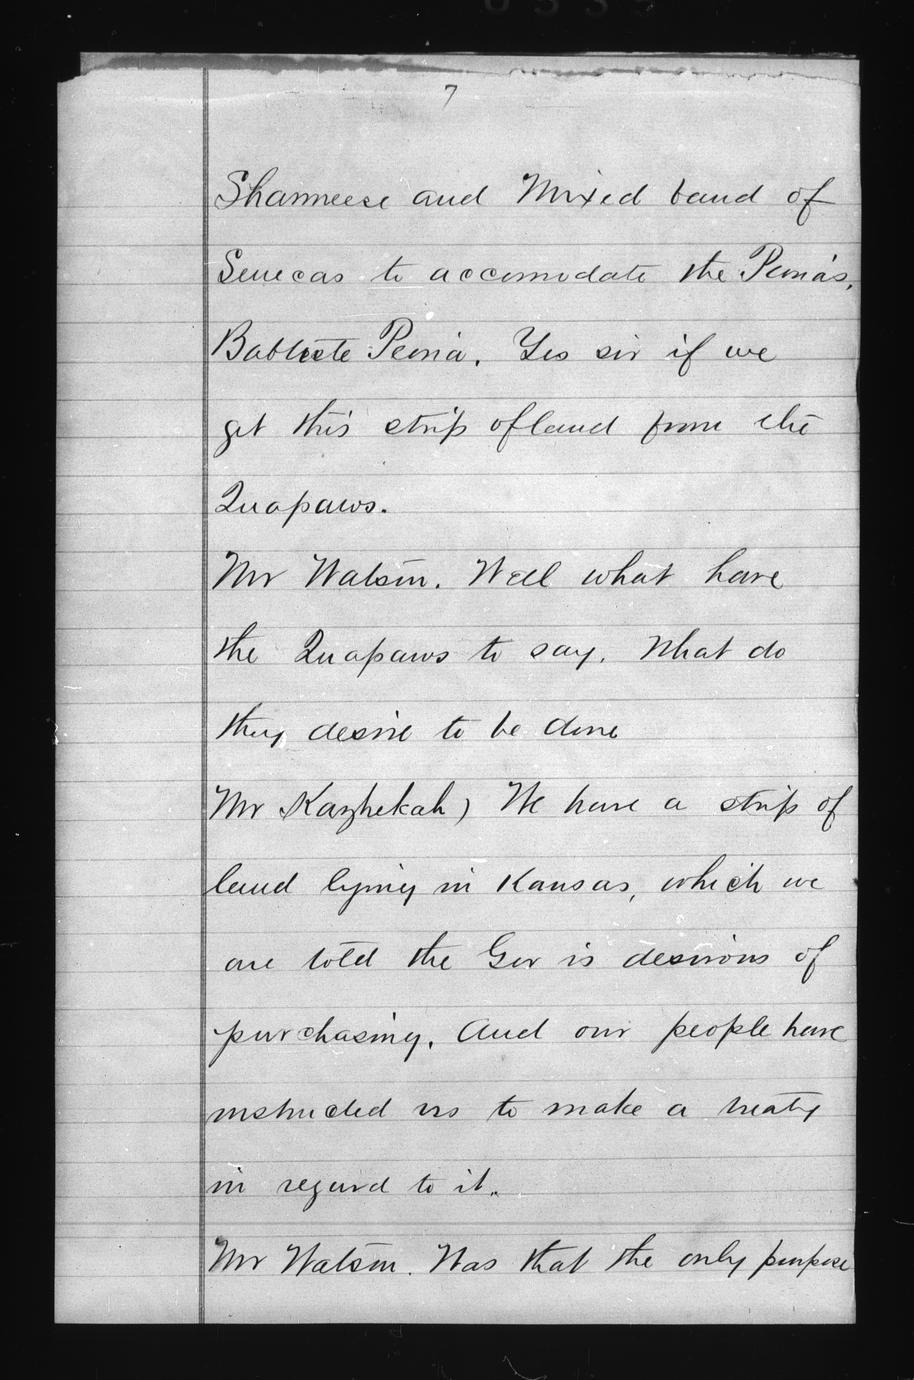 7
Shawneese and Mixed band of
Senecas to accomodate the Peoria's.
Babtiste Peoria. Yes sir if we
get this strip of land from the
Quapaws.
Mr Watson. Well what have
the Quapaws to say. What do
they desire to be done
Mr Kazhekah) We have a strip of
land lying in Kansas, which we
are told the Gov is desirous of
purchasing. And our people have
instructed us to make a treaty
in regard to it.
Mr Watson. Was that the only purpose